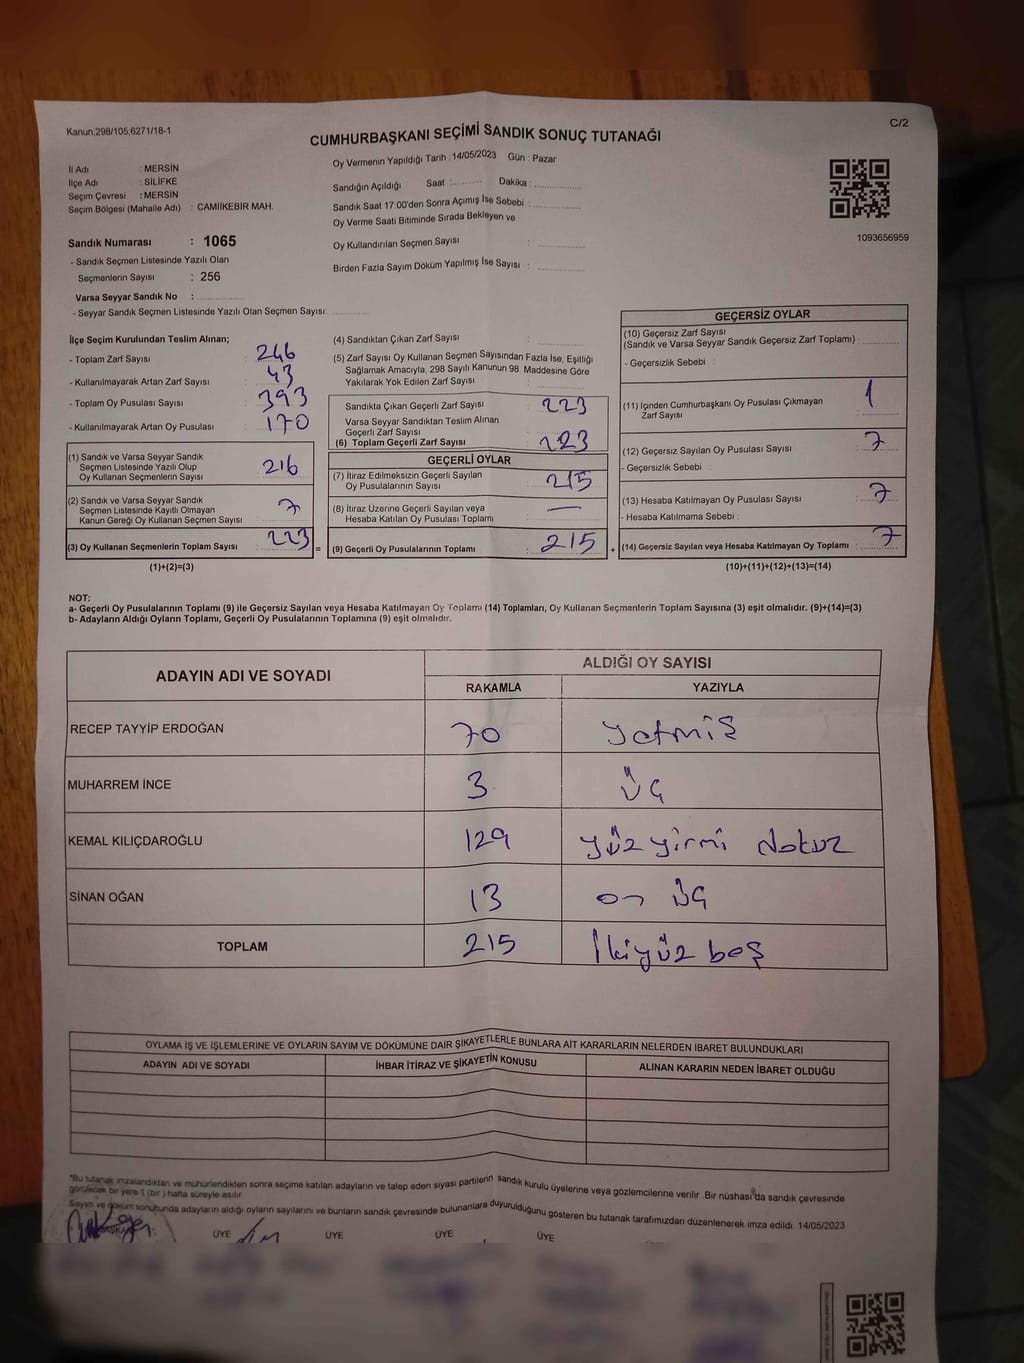 Kanun,298/105,6271/18-1
C/2
CUMHURBAŞKANI SEÇİMİ SANDIK SONUÇ TUTANAĞI
İl Adı : MERSİN
İlçe Adı : SİLİFKE
Seçim Çevresi : MERSİN
Seçim Bölgesi (Mahalle Adı) : CAMİİKEBİR MAH.
Sandık Numarası : 1065
- Sandık Seçmen Listesinde Yazılı Olan
Seçmenlerin Sayısı : 256
Varsa Seyyar Sandık No :
- Seyyar Sandık Seçmen Listesinde Yazılı Olan Seçmen Sayısı:
Oy Vermenin Yapıldığı Tarih : 14/05/2023 Gün : Pazar
Sandığın Açıldığı Saat : Dakika :
Sandık Saat 17:00'den Sonra Açımış İse Sebebi :
Oy Verme Saati Bitiminde Sırada Bekleyen ve
Oy Kullandırılan Seçmen Sayısı :
Birden Fazla Sayım Döküm Yapılmış İse Sayısı :
1093656959
İlçe Seçim Kurulundan Teslim Alınan;
- Toplam Zarf Sayısı : 266
- Kullanılmayarak Artan Zarf Sayısı : 43
- Toplam Oy Pusulası Sayısı : 393
- Kullanılmayarak Artan Oy Pusulası : 170
(1) Sandık ve Varsa Seyyar Sandık
Seçmen Listesinde Yazılı Olup
Oy Kullanan Seçmenlerin Sayısı : 216
(2) Sandık ve Varsa Seyyar Sandık
Seçmen Listesinde Kayıtlı Olmayan
Kanun Gereği Oy Kullanan Seçmen Sayısı : 7
(3) Oy Kullanan Seçmenlerin Toplam Sayısı : 223 =
(1)+(2)=(3)
(4) Sandıktan Çıkan Zarf Sayısı :
(5) Zarf Sayısı Oy Kullanan Seçmen Sayısından Fazla İse, Eşitliği
Sağlamak Amacıyla, 298 Sayılı Kanunun 98. Maddesine Göre
Yakılarak Yok Edilen Zarf Sayısı :
Sandıkta Çıkan Geçerli Zarf Sayısı : 223
Varsa Seyyar Sandıktan Teslim Alınan
Geçerli Zarf Sayısı :
(6) Toplam Geçerli Zarf Sayısı : 223
GEÇERLİ OYLAR
(7) İtiraz Edilmeksizin Geçerli Sayılan
Oy Pusulalarının Sayısı : 215
(8) İtiraz Üzerine Geçerli Sayılan veya
Hesaba Katılan Oy Pusulası Toplamı : —
(9) Geçerli Oy Pusulalarının Toplamı : 215 +
GEÇERSİZ OYLAR
(10) Geçersiz Zarf Sayısı
(Sandık ve Varsa Seyyar Sandık Geçersiz Zarf Toplamı) :
- Geçersizlik Sebebi :
(11) İçinden Cumhurbaşkanı Oy Pusulası Çıkmayan
Zarf Sayısı : 1
(12) Geçersiz Sayılan Oy Pusulası Sayısı : 7
- Geçersizlik Sebebi :
(13) Hesaba Katılmayan Oy Pusulası Sayısı : 7
- Hesaba Katılmama Sebebi :
(14) Geçersiz Sayılan veya Hesaba Katılmayan Oy Toplamı : 7
(10)+(11)+(12)+(13)=(14)
NOT:
a- Geçerli Oy Pusulalarının Toplamı (9) ile Geçersiz Sayılan veya Hesaba Katılmayan Oy Toplamı (14) Toplamları, Oy Kullanan Seçmenlerin Toplam Sayısına (3) eşit olmalıdır. (9)+(14)=(3)
b- Adayların Aldığı Oyların Toplamı, Geçerli Oy Pusulalarının Toplamına (9) eşit olmalıdır.
ADAYIN ADI VE SOYADI ALDIĞI OY SAYISI
RAKAMLA YAZIYLA
RECEP TAYYİP ERDOĞAN 70 yetmiş
MUHARREM İNCE 3 üç
KEMAL KILIÇDAROĞLU 129 yüz yirmi dokuz
SİNAN OĞAN 13 on üç
TOPLAM 215 İkiyüz beş
OYLAMA İŞ VE İŞLEMLERİNE VE OYLARIN SAYIM VE DÖKÜMÜNE DAİR ŞİKAYETLERLE BUNLARA AİT KARARLARIN NELERDEN İBARET BULUNDUKLARI
ADAYIN ADI VE SOYADI İHBAR İTİRAZ VE ŞİKAYETİN KONUSU ALINAN KARARIN NEDEN İBARET OLDUĞU
*Bu tutanak imzalandıktan ve mühürlendikten sonra seçime katılan adayların ve talep eden siyasi partilerin sandık kurulu üyelerine veya gözlemcilerine verilir .Bir nüshası da sandık çevresinde
görülecek bir yere 1 (bir ) hafta süreyle asılır
Sayım ve döküm sonubunda adayların aldığı oyların sayılarını ve bunların sandık çevresinde bulunanlara duyurulduğunu gösteren bu tutanak tarafımızdan düzenlenerek imza edildi. 14/05/2023
BAŞKAN ÜYE ÜYE ÜYE ÜYE